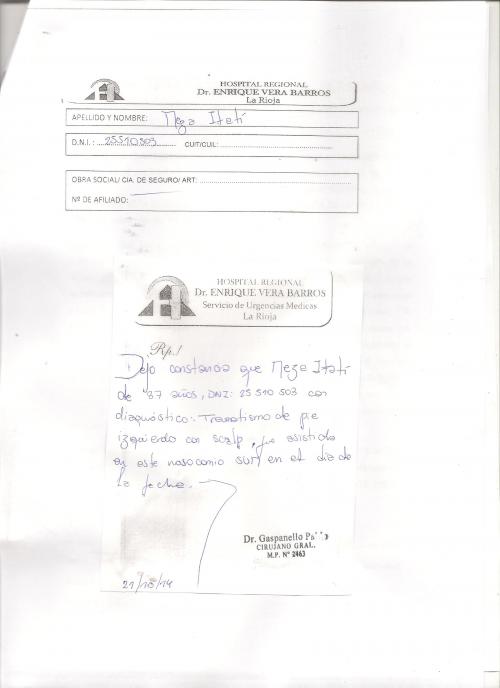 HOSPITAL REGIONAL
Dr. ENRIQUE VERA BARROS
La Rioja
APELLIDO Y NOMBRE: Meza Itatí
D.N.I.: 25510503 CUIT/CUIL:
OBRA SOCIAL/ CIA. DE SEGURO/ ART:
Nº DE AFILIADO:
HOSPITAL REGIONAL
Dr. ENRIQUE VERA BARROS
Servicio de Urgencias Medicas
La Rioja
Rp./
Dejo constancia que Meza Itatí
de 37 años, DNI: 25 510 503 con
diagnóstico: Traumatismo de pie
izquierdo con scalp, fue asistida
en este nosocomio en el día de
la fecha.
Dr. Gaspanello
CIRUJANO GRAL.
M.P. Nº 2463
21/10/14